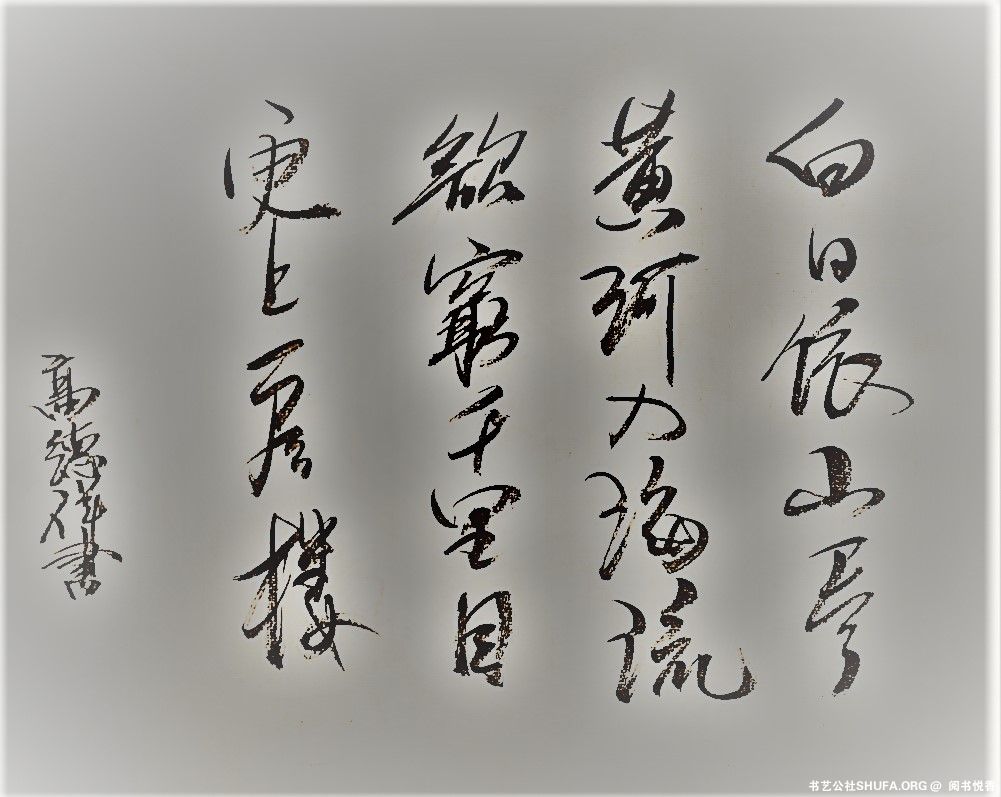 白日依山尽
黄河入海流
欲窮千里目
更上一层樓
高德書
书艺公社SHUFA.ORG @ 阅书悦香